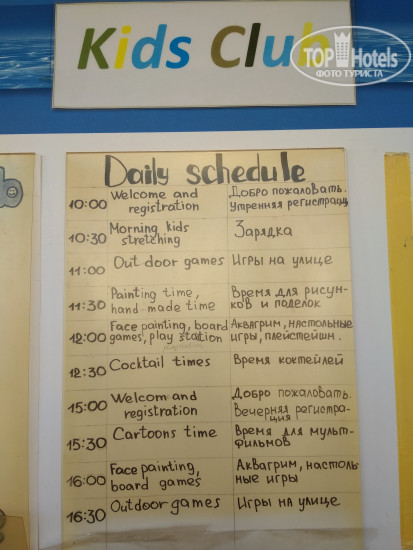 Kids Club
TOP Hotels
ФОТО ТУРИСТА
Daily schedule
10:00 Welcome and Добро пожаловать.
registration Утренняя регистрация
10:30 Morning kids Зарядка
stretching
11:00 Out door games Игры на улице
11:30 Painting time, Время для рисун-
hand-made time ков и поделок
12:00 Face painting, board Аквагрим, настольные
games, play station игры, плейстейшн.
12:30 Cocktail times Время коктейлей
15:00 Welcom and Добро пожаловать.
registration Вечерняя регистра-
ция
15:30 Cartoons time Время для муль-
фильмов
16:00 Face painting, Аквагрим, настоль-
board games ные игры
16:30 Outdoor games Игры на улице